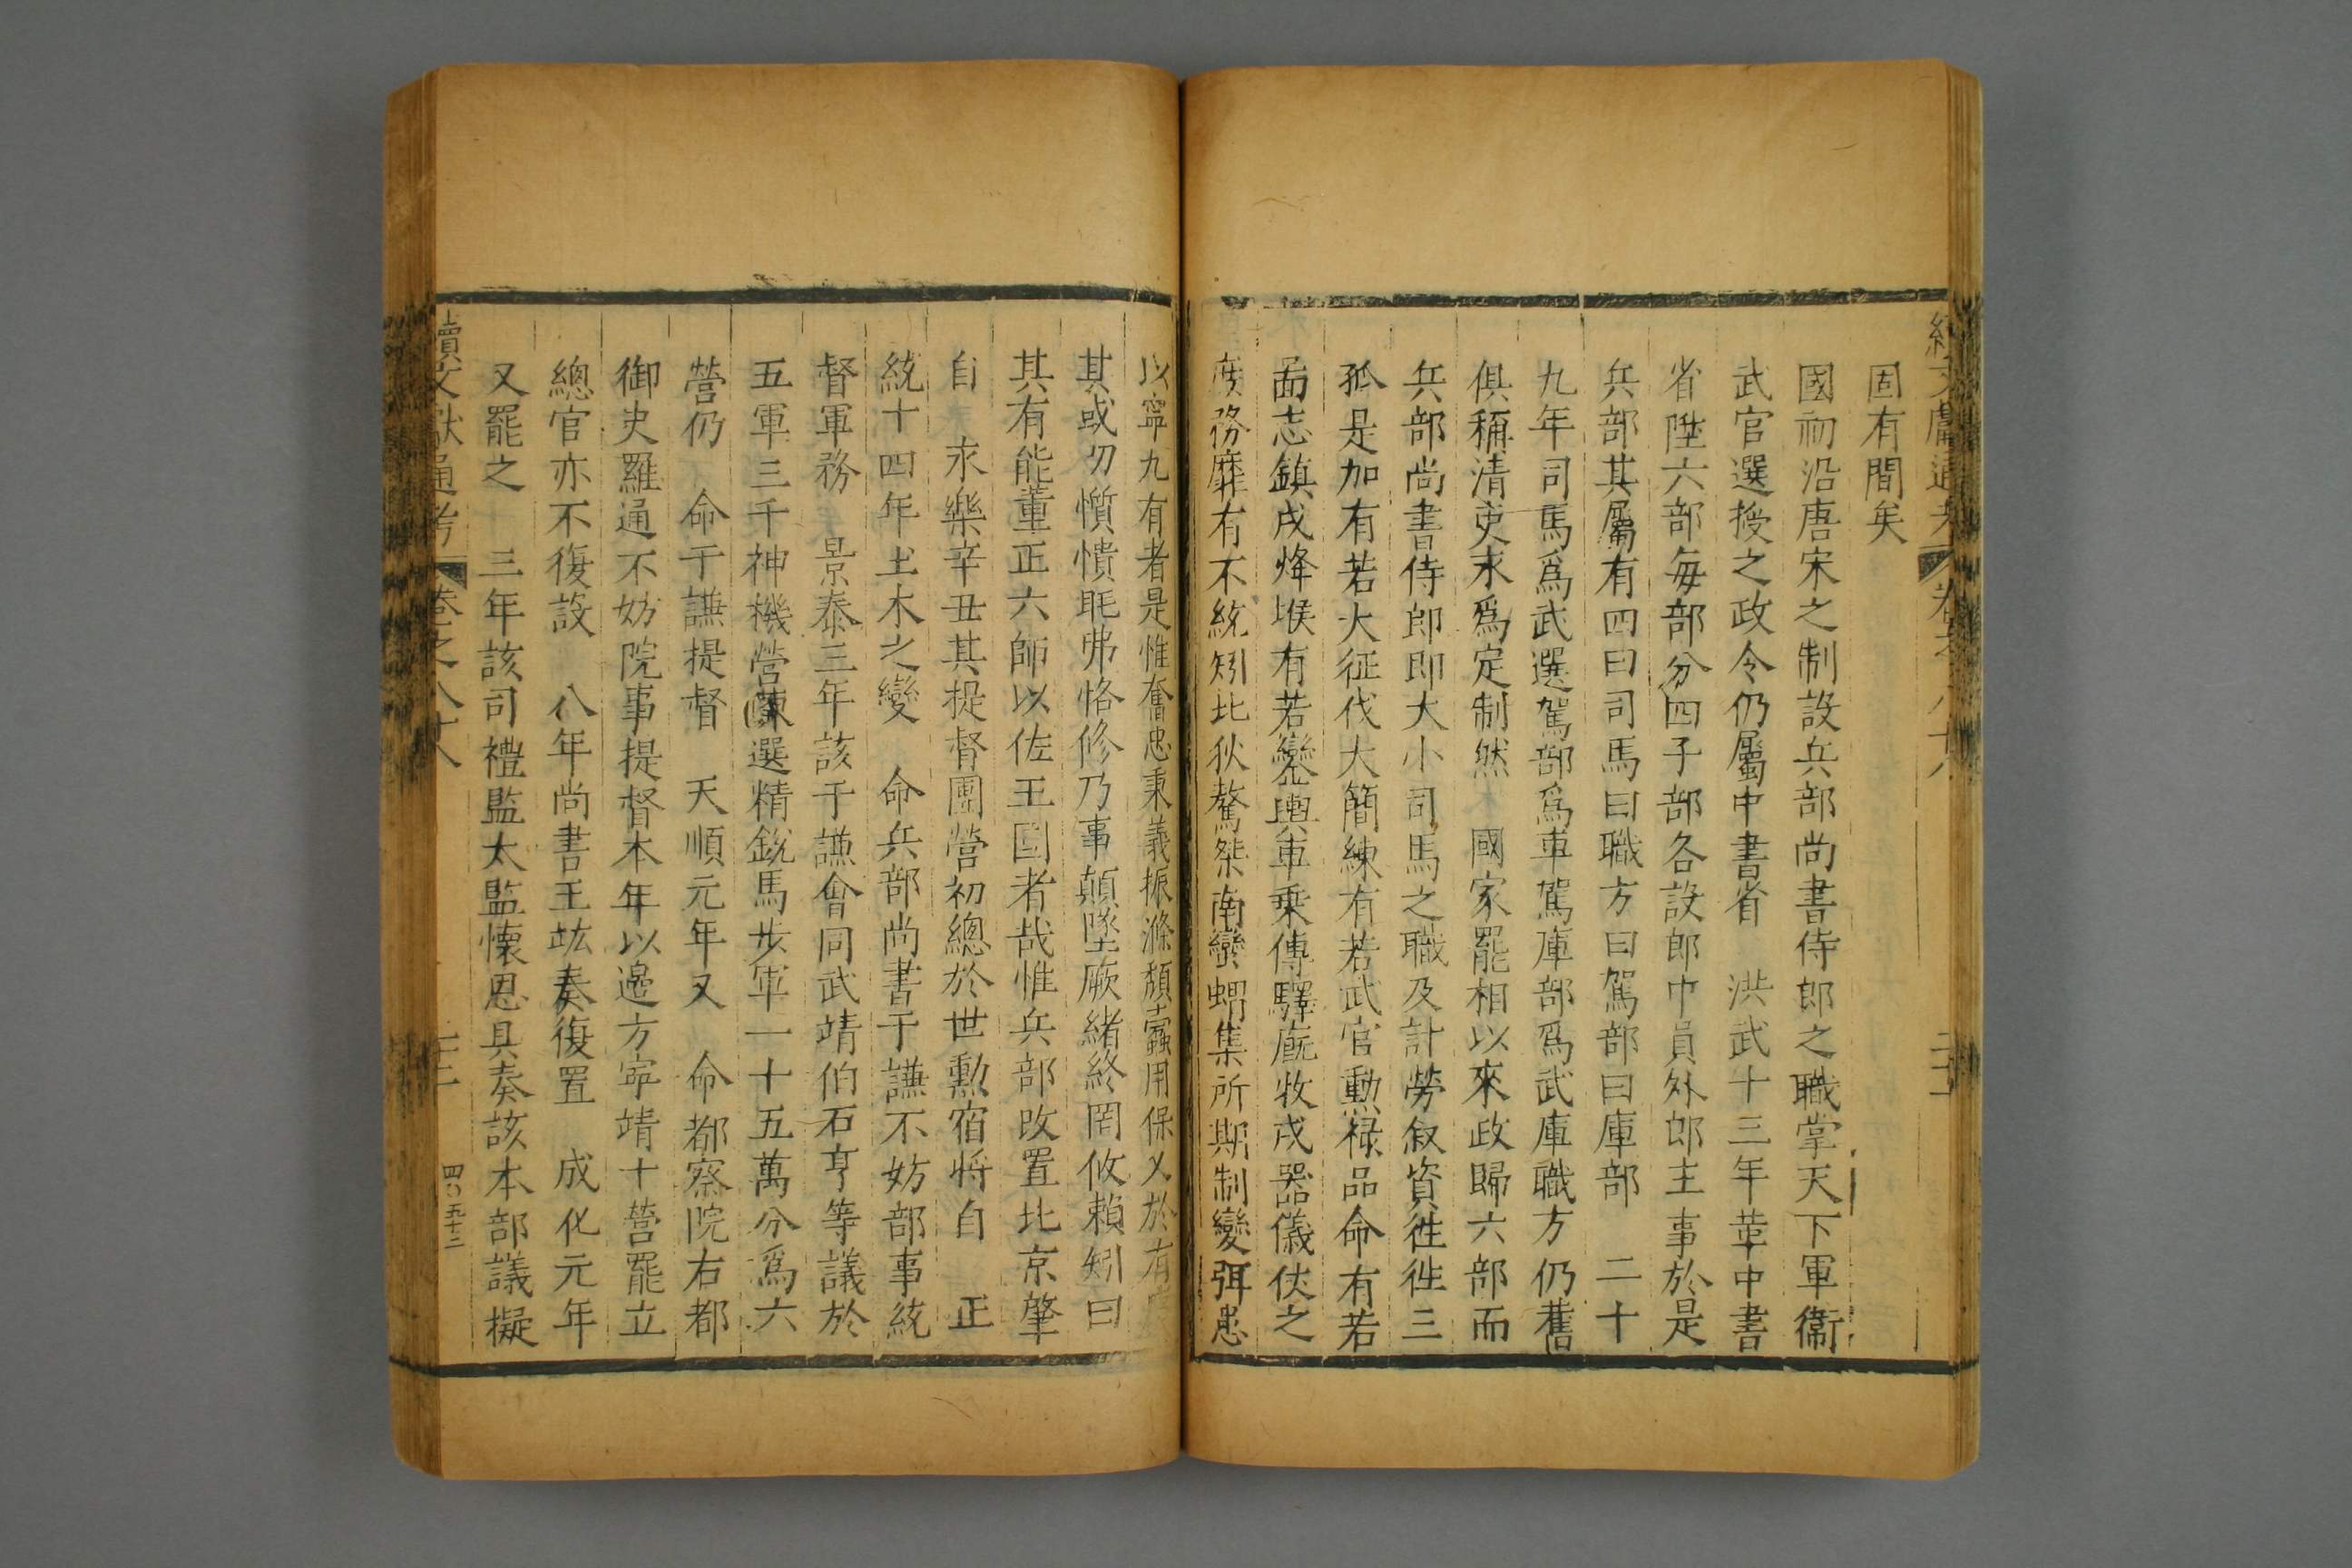 固有間矣
國初沿唐宋之制設兵部尚書侍郎之職掌天下軍衞
武官選授之政令仍屬中書省　洪武十三年革中書
省陞六部每部分四子部各設郎中員外郎主事於是
兵部其屬有四曰司馬曰職方曰駕部曰庫部　二十
九年司馬爲武選駕部爲車駕庫部爲武庫職方仍舊
俱稱清吏永爲定制然　國家罷相以來政歸六部而
兵部尚書侍郎即大小司馬之職及計勞叙資徃徃三
孤是加有若大征伐大簡練有若武官勳祿品命有若
啚志鎮戍烽堠有若鑾輿車乗傳驛廐牧戎器儀仗之
庶務靡有不統矧北狄驁桀南蠻蝟集所期制變弭患
以寧九有者是惟奮忠秉義振滌頽蠹用保乂於有
其或刅懫憒眊弗恪修乃事顛墜厥緒終罔攸賴矧曰
其有能董正六師以佐王国者哉惟兵部改置北京肇
自　永樂辛丑其提督團營初總於世勳宿將自　正
統十四年土木之變　命兵部尚書于謙不妨部事統
督軍務　景泰三年該于謙會同武靖伯石亨等議於
五軍三千神機營陳選精銳馬步軍一十五萬分爲六
營仍　命于謙提督　天順元年又　命都察院右都
御史羅通不妨院事提督本年以邊方寧靖十營罷立
總官亦不復設　八年尚書王竑奏復置　成化元年
又罷之　三年該司禮監太監懷恩具奏該本部議擬
續文獻通考　卷之八十八　四百五十三